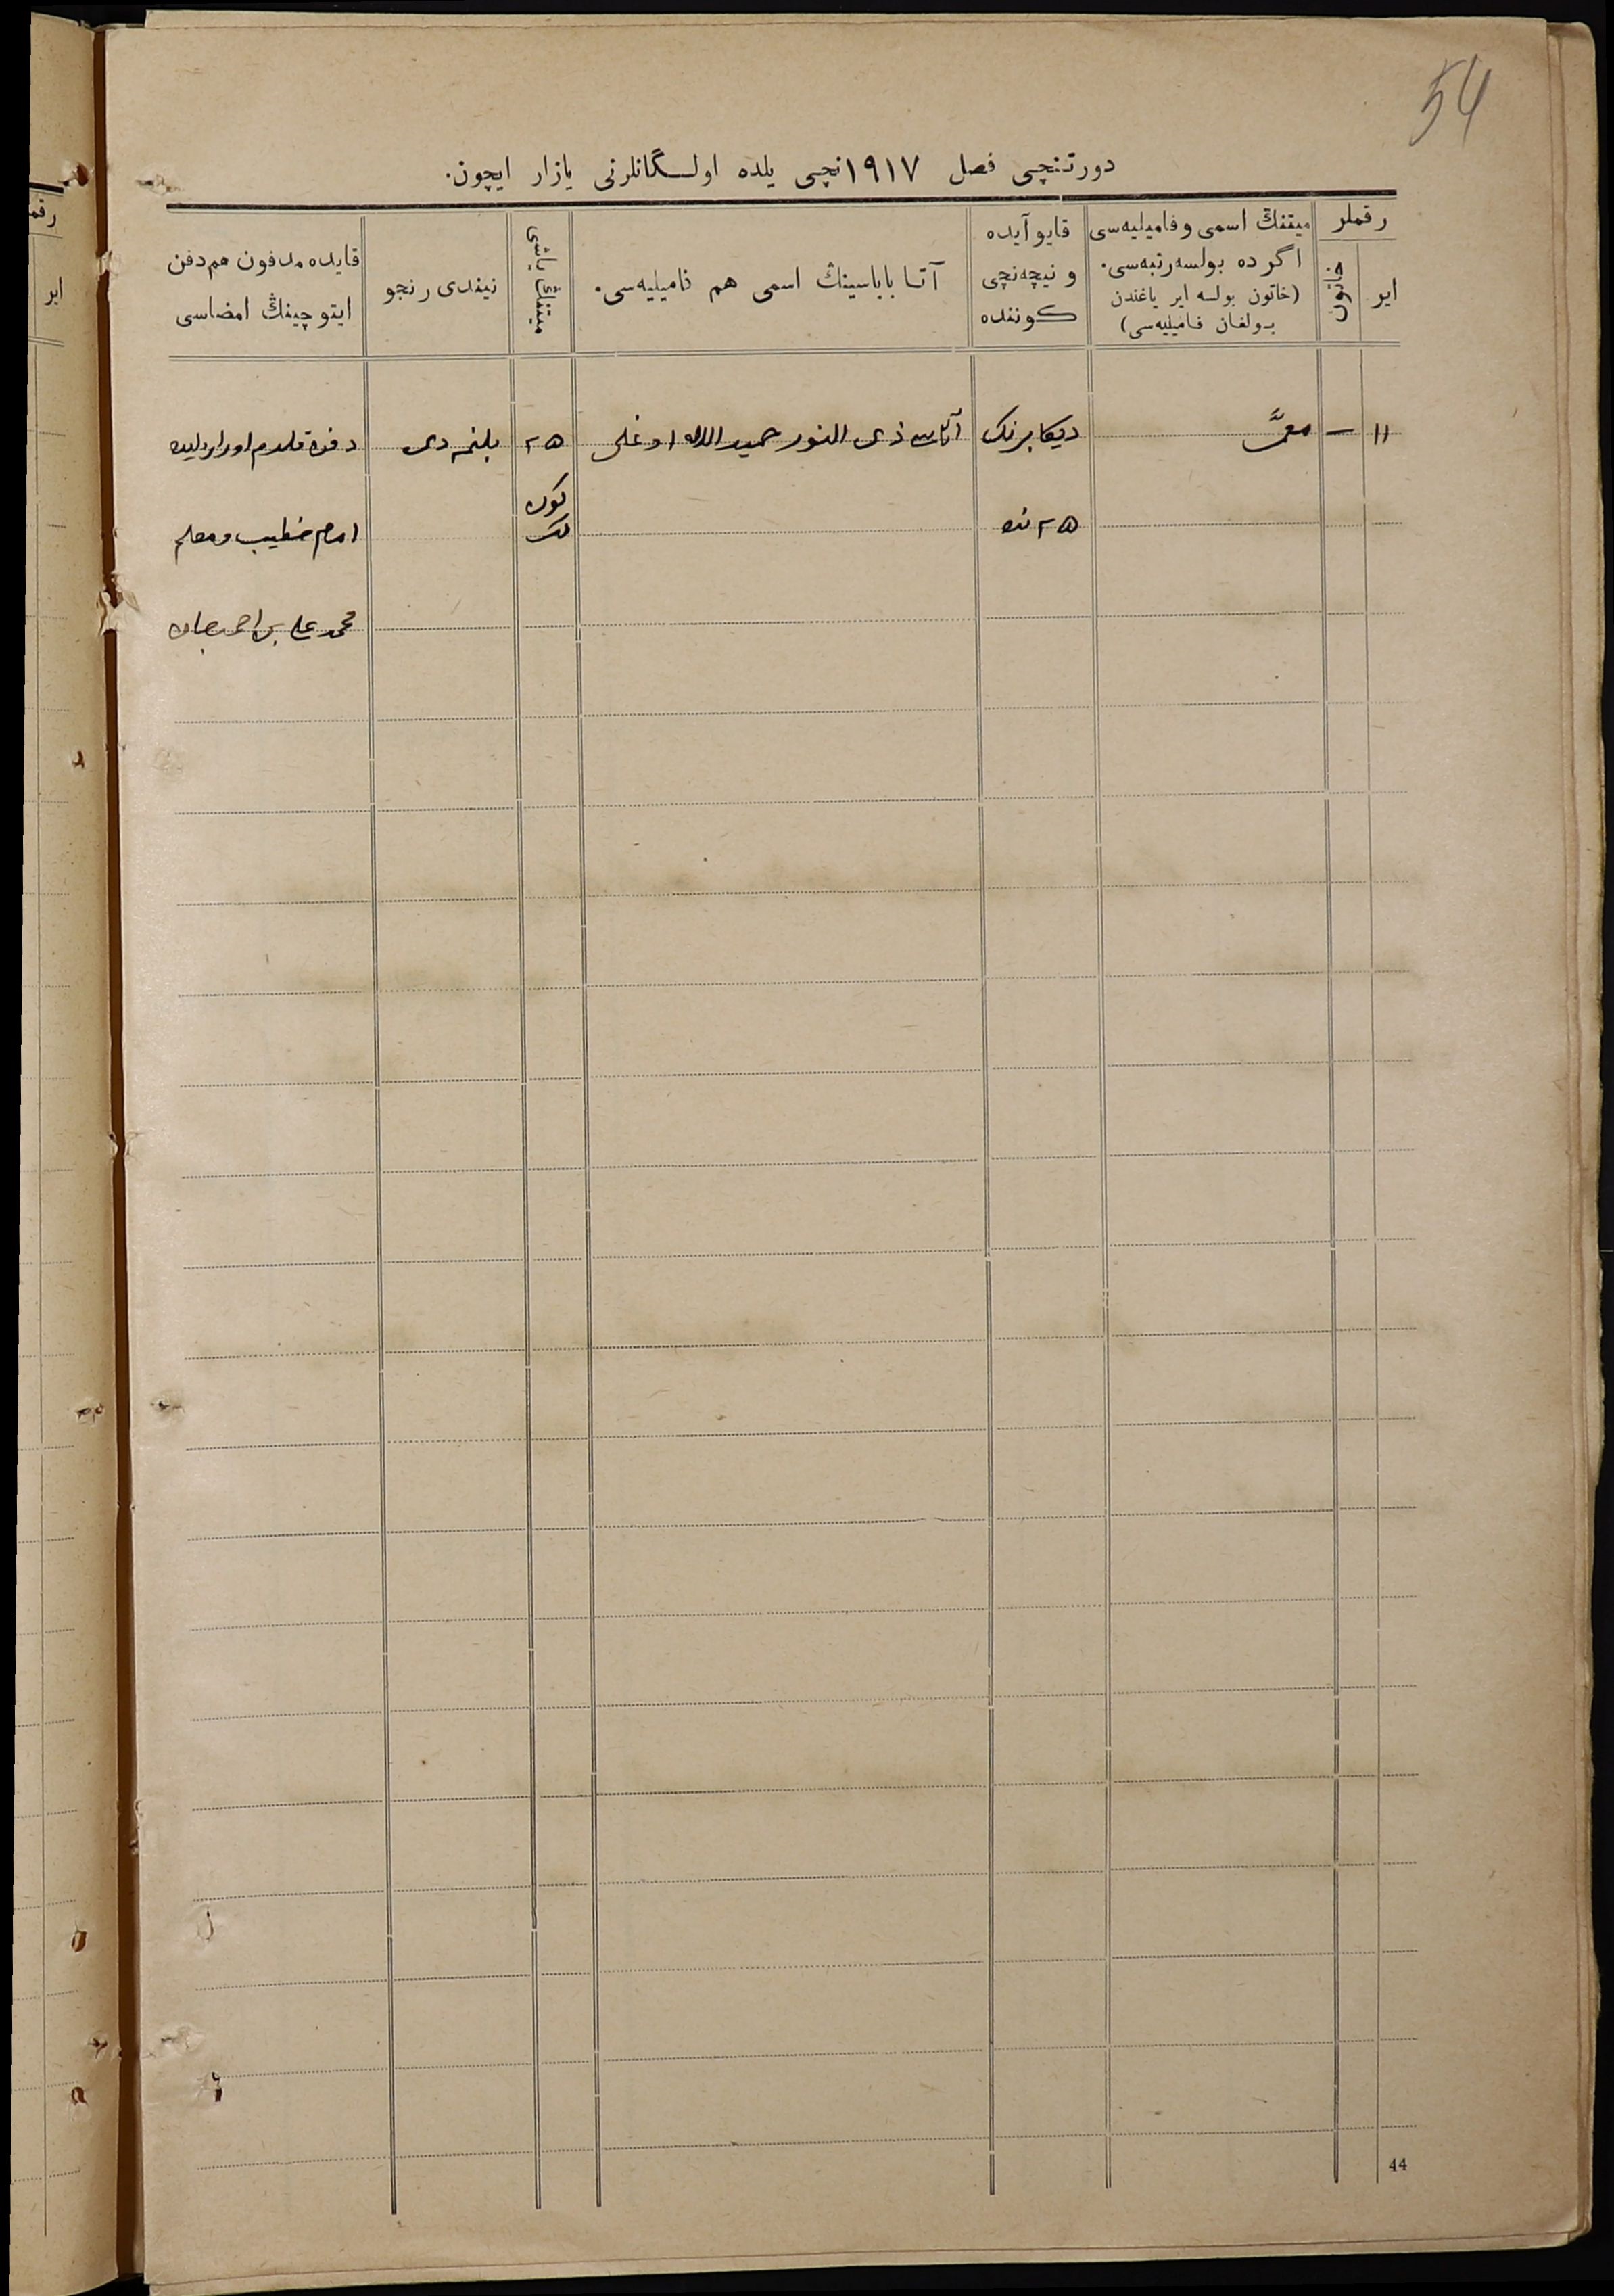 54
دورتنچی فصل ١٩١٧نچی یلده اولـگانلرنی یازار ایچون.
رقملر
ایر
خاتون
میتنڭ اسمی و فامیلیه‌سی
اگر ده بولسه رتبه‌سی.
(خاتون بولسه ایر یاغندن
بولغان فامیلیه‌سی)
قایو آیده
و نیچه‌نچی
کوننده
آتا باباسینڭ اسمی هم فامیلیه‌سی.
میتنڭ یاشی
نیندی رنجو
قایده مدفون هم دفن
ایتوچینڭ امضاسی
١١
—
معمر
دیکابرنک
٢٥ نده
آتاسی ذی النور حمید الله اوغلی
٢٥
کون
لک
بلنمه‌دی
امام خطیب و معلم
محمد علی بن احمدجان
44
رقم
ایر